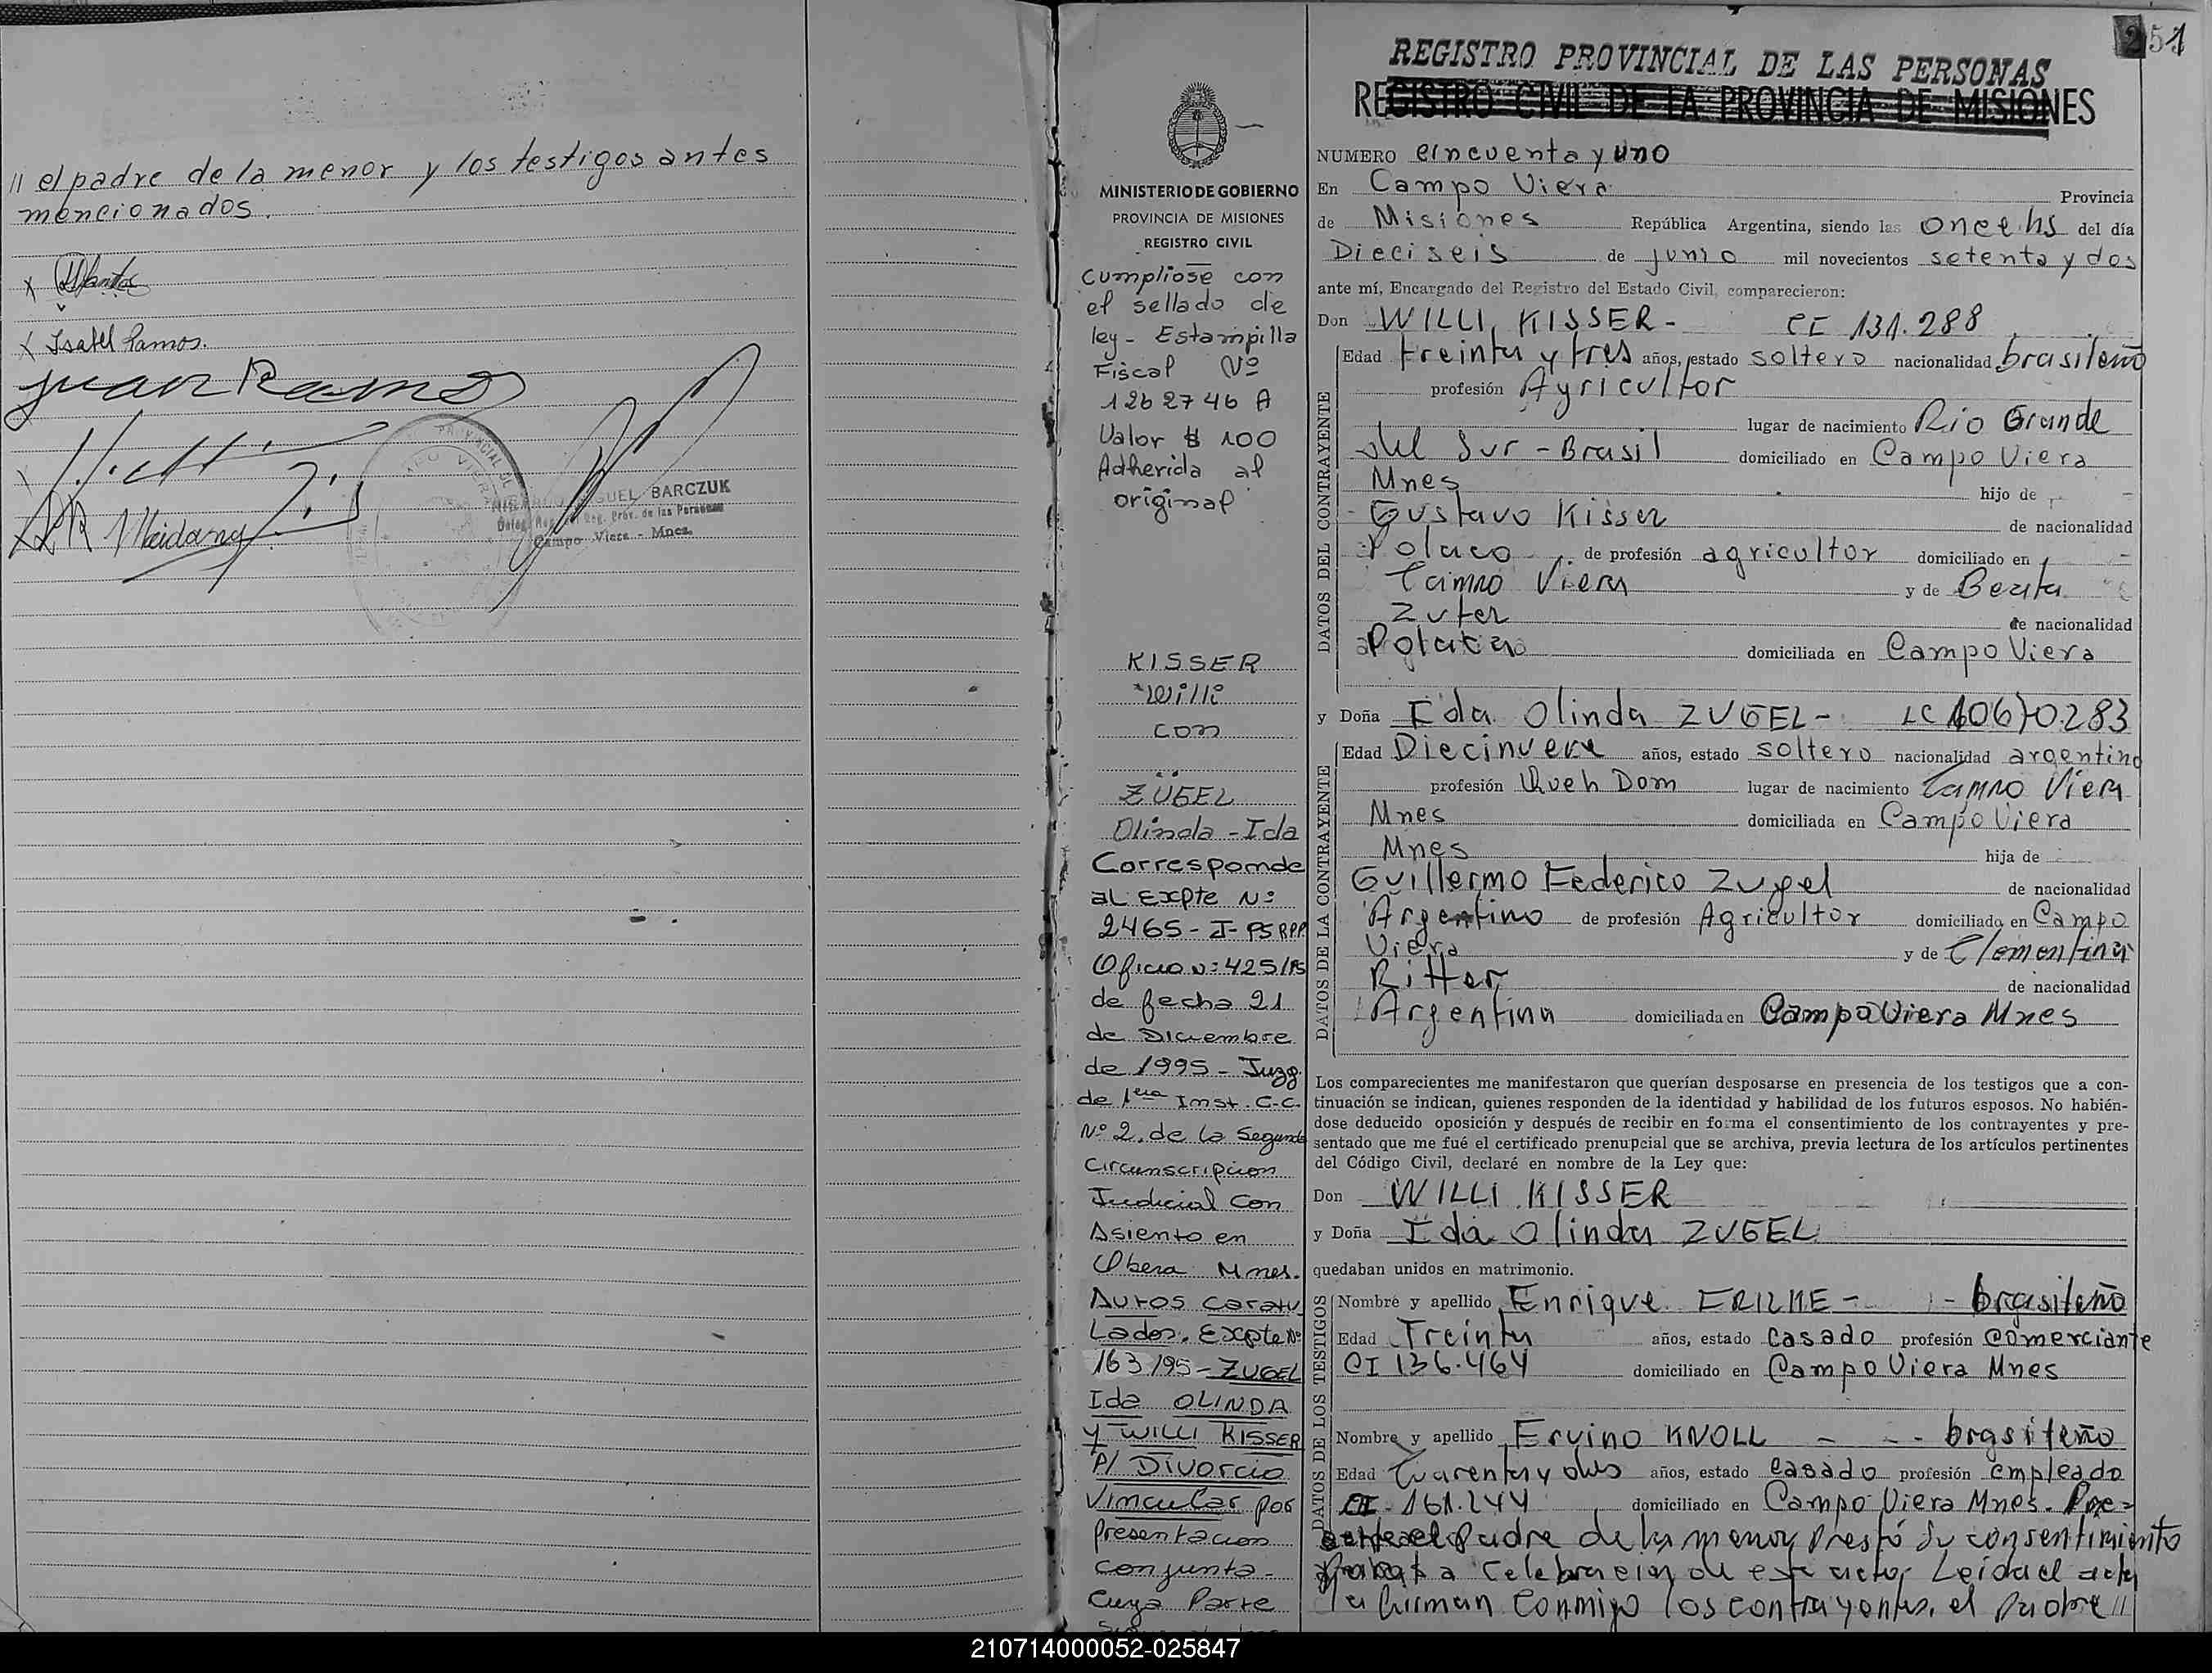 // el padre de la menor y los testigos antes
mencionados.
X
X Isabel Ramos.
Juan Ramos
X
MIGUEL BARCZUK
Campo Viera - Mnes.
251
REGISTRO PROVINCIAL DE LAS PERSONAS
REGISTRO CIVIL DE LA PROVINCIA DE MISIONES
MINISTERIO DE GOBIERNO
PROVINCIA DE MISIONES
REGISTRO CIVIL
Cumpliose con
el sellado de
ley - Estampilla
Fiscal Nº
1262746 A
Valor $ 100
Adherida al
original
KISSER
Willi
con
ZÜGEL
Olinda - Ida
Corresponde
al Expte Nº
2465 - J - PS RPP
Oficio Nº 425/95
de fecha 21
de Diciembre
de 1995 - Juzg.
de 1era Inst. C.C.
Nº 2, de la Segunda
Circunscripcion
Judicial Con
Asiento en
Obera Mnes.
Autos caratu
Lados. Expte Nº
163/95 - ZUGEL
Ida OLINDA
y WILLI KISSER
P/ Divorcio
Vincular por
presentacion
conjunta -
Cuya Parte
NUMERO cincuenta y uno
En Campo Viera Provincia
de Misiones República Argentina, siendo las once hs del día
Dieciseis de junio mil novecientos setenta y dos
ante mí, Encargado del Registro del Estado Civil, comparecieron:
Don WILLI KISSER - CI 131.288
DATOS DEL CONTRAYENTE
Edad treinta y tres años, estado soltero nacionalidad brasileño
profesión Agricultor
lugar de nacimiento Rio Grande
del Sur - Brasil domiciliado en Campo Viera
Mnes hijo de
Gustavo Kisser de nacionalidad
Polaco de profesión agricultor domiciliado en
Campo Viera y de Berta
Zuter de nacionalidad
domiciliada en Campo Viera
y Doña Ida Olinda ZUGEL - LC
DATOS DE LA CONTRAYENTE
Edad Diecinueve años, estado soltero nacionalidad argentina
profesión Queh Dom lugar de nacimiento Campo Viera
Mnes domiciliada en Campo Viera
Mnes hija de
Guillermo Federico Zugel de nacionalidad
Argentino de profesión Agricultor domiciliado en Campo
Viera y de Clementina
Ritter de nacionalidad
Argentina domiciliada en Campo Viera Mnes
Los comparecientes me manifestaron que querían desposarse en presencia de los testigos que a con-
tinuación se indican, quienes responden de la identidad y habilidad de los futuros esposos. No habién-
dose deducido oposición y después de recibir en forma el consentimiento de los contrayentes y pre-
sentado que me fué el certificado prenupcial que se archiva, previa lectura de los artículos pertinentes
del Código Civil, declaré en nombre de la Ley que:
Don WILLI KISSER
y Doña Ida Olinda ZUGEL
quedaban unidos en matrimonio.
DATOS DE LOS TESTIGOS
Nombre y apellido Enrique - brasileño
Edad Treinta años, estado casado profesión comerciante
CI 136.464 domiciliado en Campo Viera Mnes
Nombre y apellido Ervino KNOLL - - - brasileño
Edad Cuarenta y dos años, estado casado profesión empleado
CI - 161.244 domiciliado en Campo Viera Mnes.
el Padre de la menor prestó su consentimiento
para la celebración de este acto, Leida el acta
la firman conmigo los contrayentes, el padre //
210714000052-025847